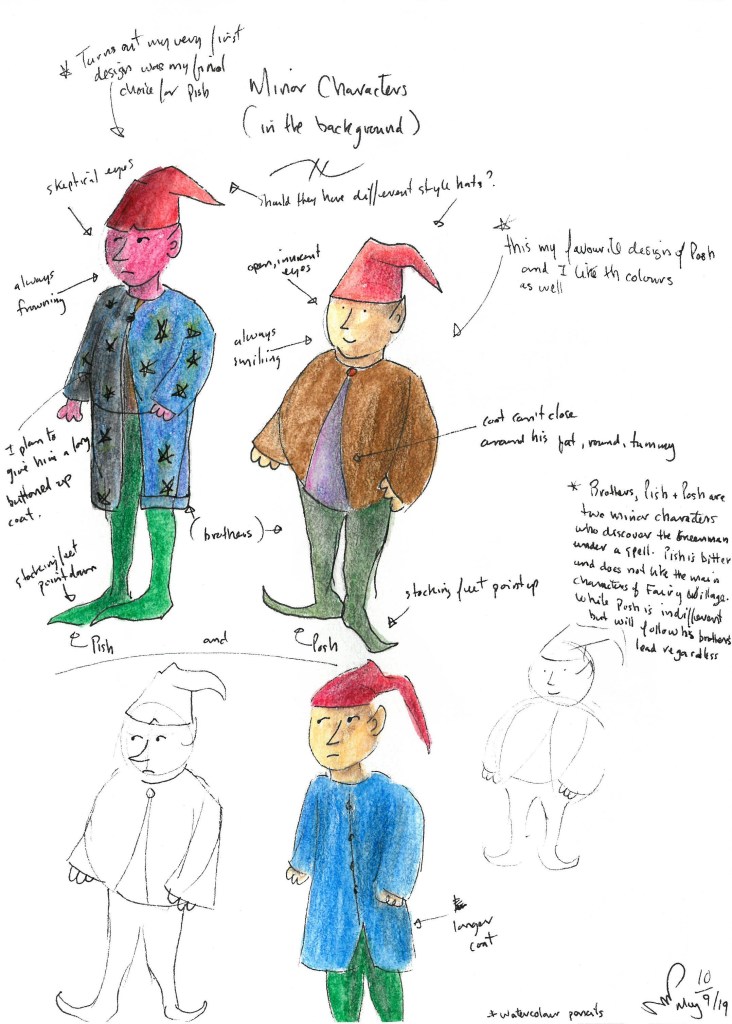 * Turns out my very first
design was my final
choice for Pish
Minor Characters
(in the background)
skeptical eyes
should they have different style hats?
always
frowning
open, innocent
eyes
* this my favourite design of Posh
and I like th colours
as well
always
smiling
coat can't close
around his fat, round, tummy
I plan to
give him a long
buttoned up
coat.
(brothers)
* Brothers, Pish + Posh are
two minor characters
who discover the Greenman
under a spell. Pish is bitter
and does not like the main
characters of Fairy Village.
While Posh is indifferent
but will follow his brothers
lead regardless
stocking feet
point down
stocking feet point up
Pish
and
Posh
longer
coat
* watercolour pencils
10/9/19